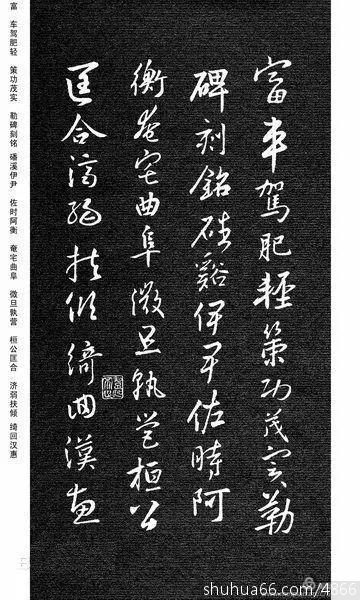 富車駕肥輕策功茂實勒
碑刻銘磻谿伊尹佐時阿
衡奄宅曲阜微旦孰營桓公
匡合濟弱扶傾綺回漢惠
富 车驾肥轻 策功茂实 勒碑刻铭 磻溪伊尹 佐时阿衡 奄宅曲阜 微旦孰营 桓公匡合 济弱扶倾 绮回汉惠
shuhua66.com/4866